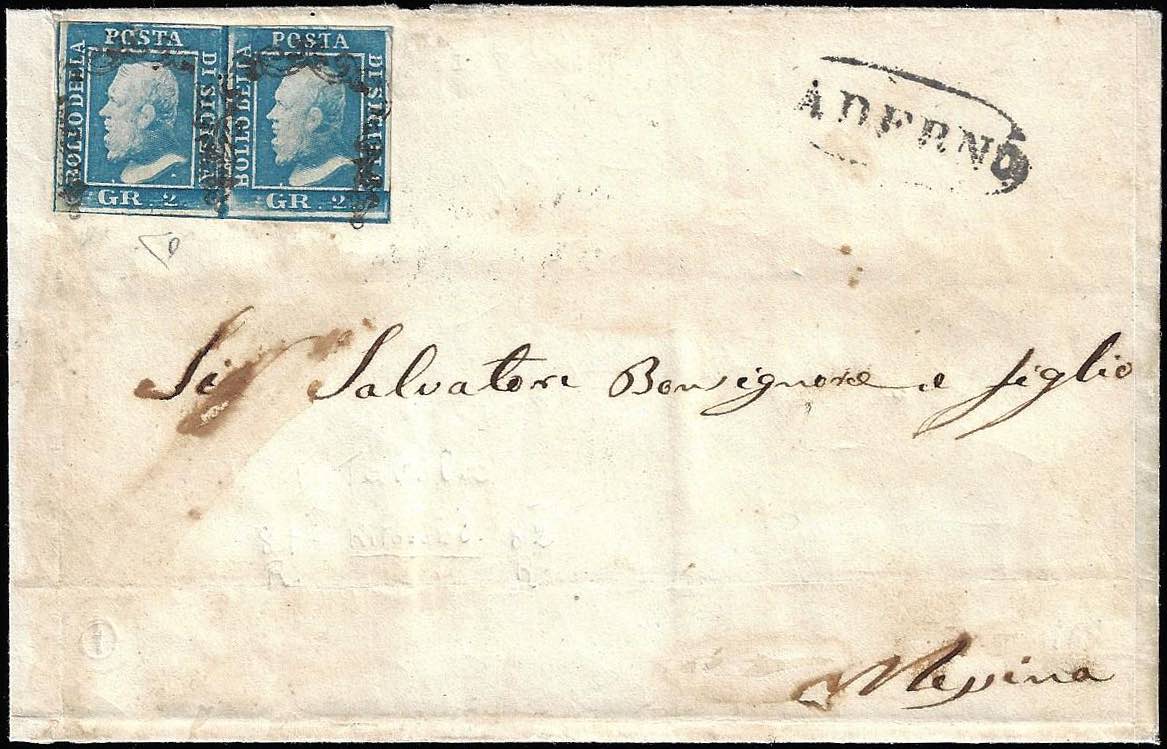 POSTA
BOLLO DELLA
DI SICILIA
GR. 2.
POSTA
BOLLO DELLA
DI SICILIA
GR. 2.
ADERNÒ
Salvatore Bonsignore e figlio
Messina